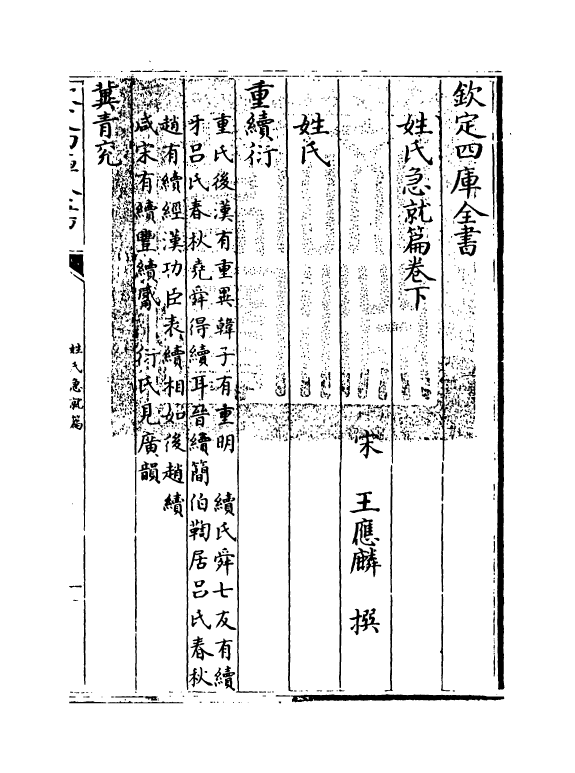 欽定四庫全書
姓氏急就篇卷下
宋 王應麟 撰
姓氏
重續衍
重氏後漢有重異韓子有重明 續氏舜七友有續
牙吕氏春秋堯舜得續耳晉續簡伯鞫居吕氏春秋
趙有續經漢功臣表續相如後趙續
咸宋有續豐續 衍氏見廣韻
冀青兖
姓氏急就篇
一